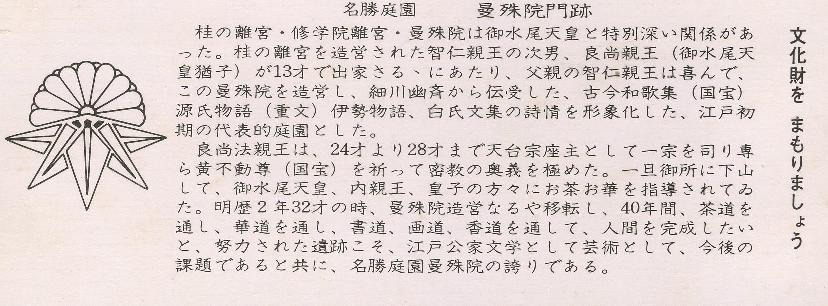 名勝庭園　曼殊院門跡
桂の離宮・修学院離宮・曼殊院は御水尾天皇と特別深い関係があ
った。桂の離宮を造営された智仁親王の次男、良尚親王（御水尾天
皇猶子）が13才で出家さるゝにあたり、父親の智仁親王は喜んで、
この曼殊院を造営し、細川幽斉から伝受した、古今和歌集（国宝）
源氏物語（重文）伊勢物語、白氏文集の詩情を形象化した、江戸初
期の代表的庭園とした。
良尚法親王は、24才より28才まで天台宗座主として一宗を司り専
ら黄不動尊（国宝）を祈って密教の奥義を極めた。一旦御所に下山
して、御水尾天皇、内親王、皇子の方々にお茶お華を指導されてゐ
た。明歴２年32才の時、曼殊院造営なるや移転し、40年間、茶道を
通し、華道を通し、書道、画道、香道を通して、人間を完成したい
と、努力された遺跡こそ、江戸公家文学として芸術として、今後の
課題であると共に、名勝庭園曼殊院の誇りである。
文化財を まもりましょう